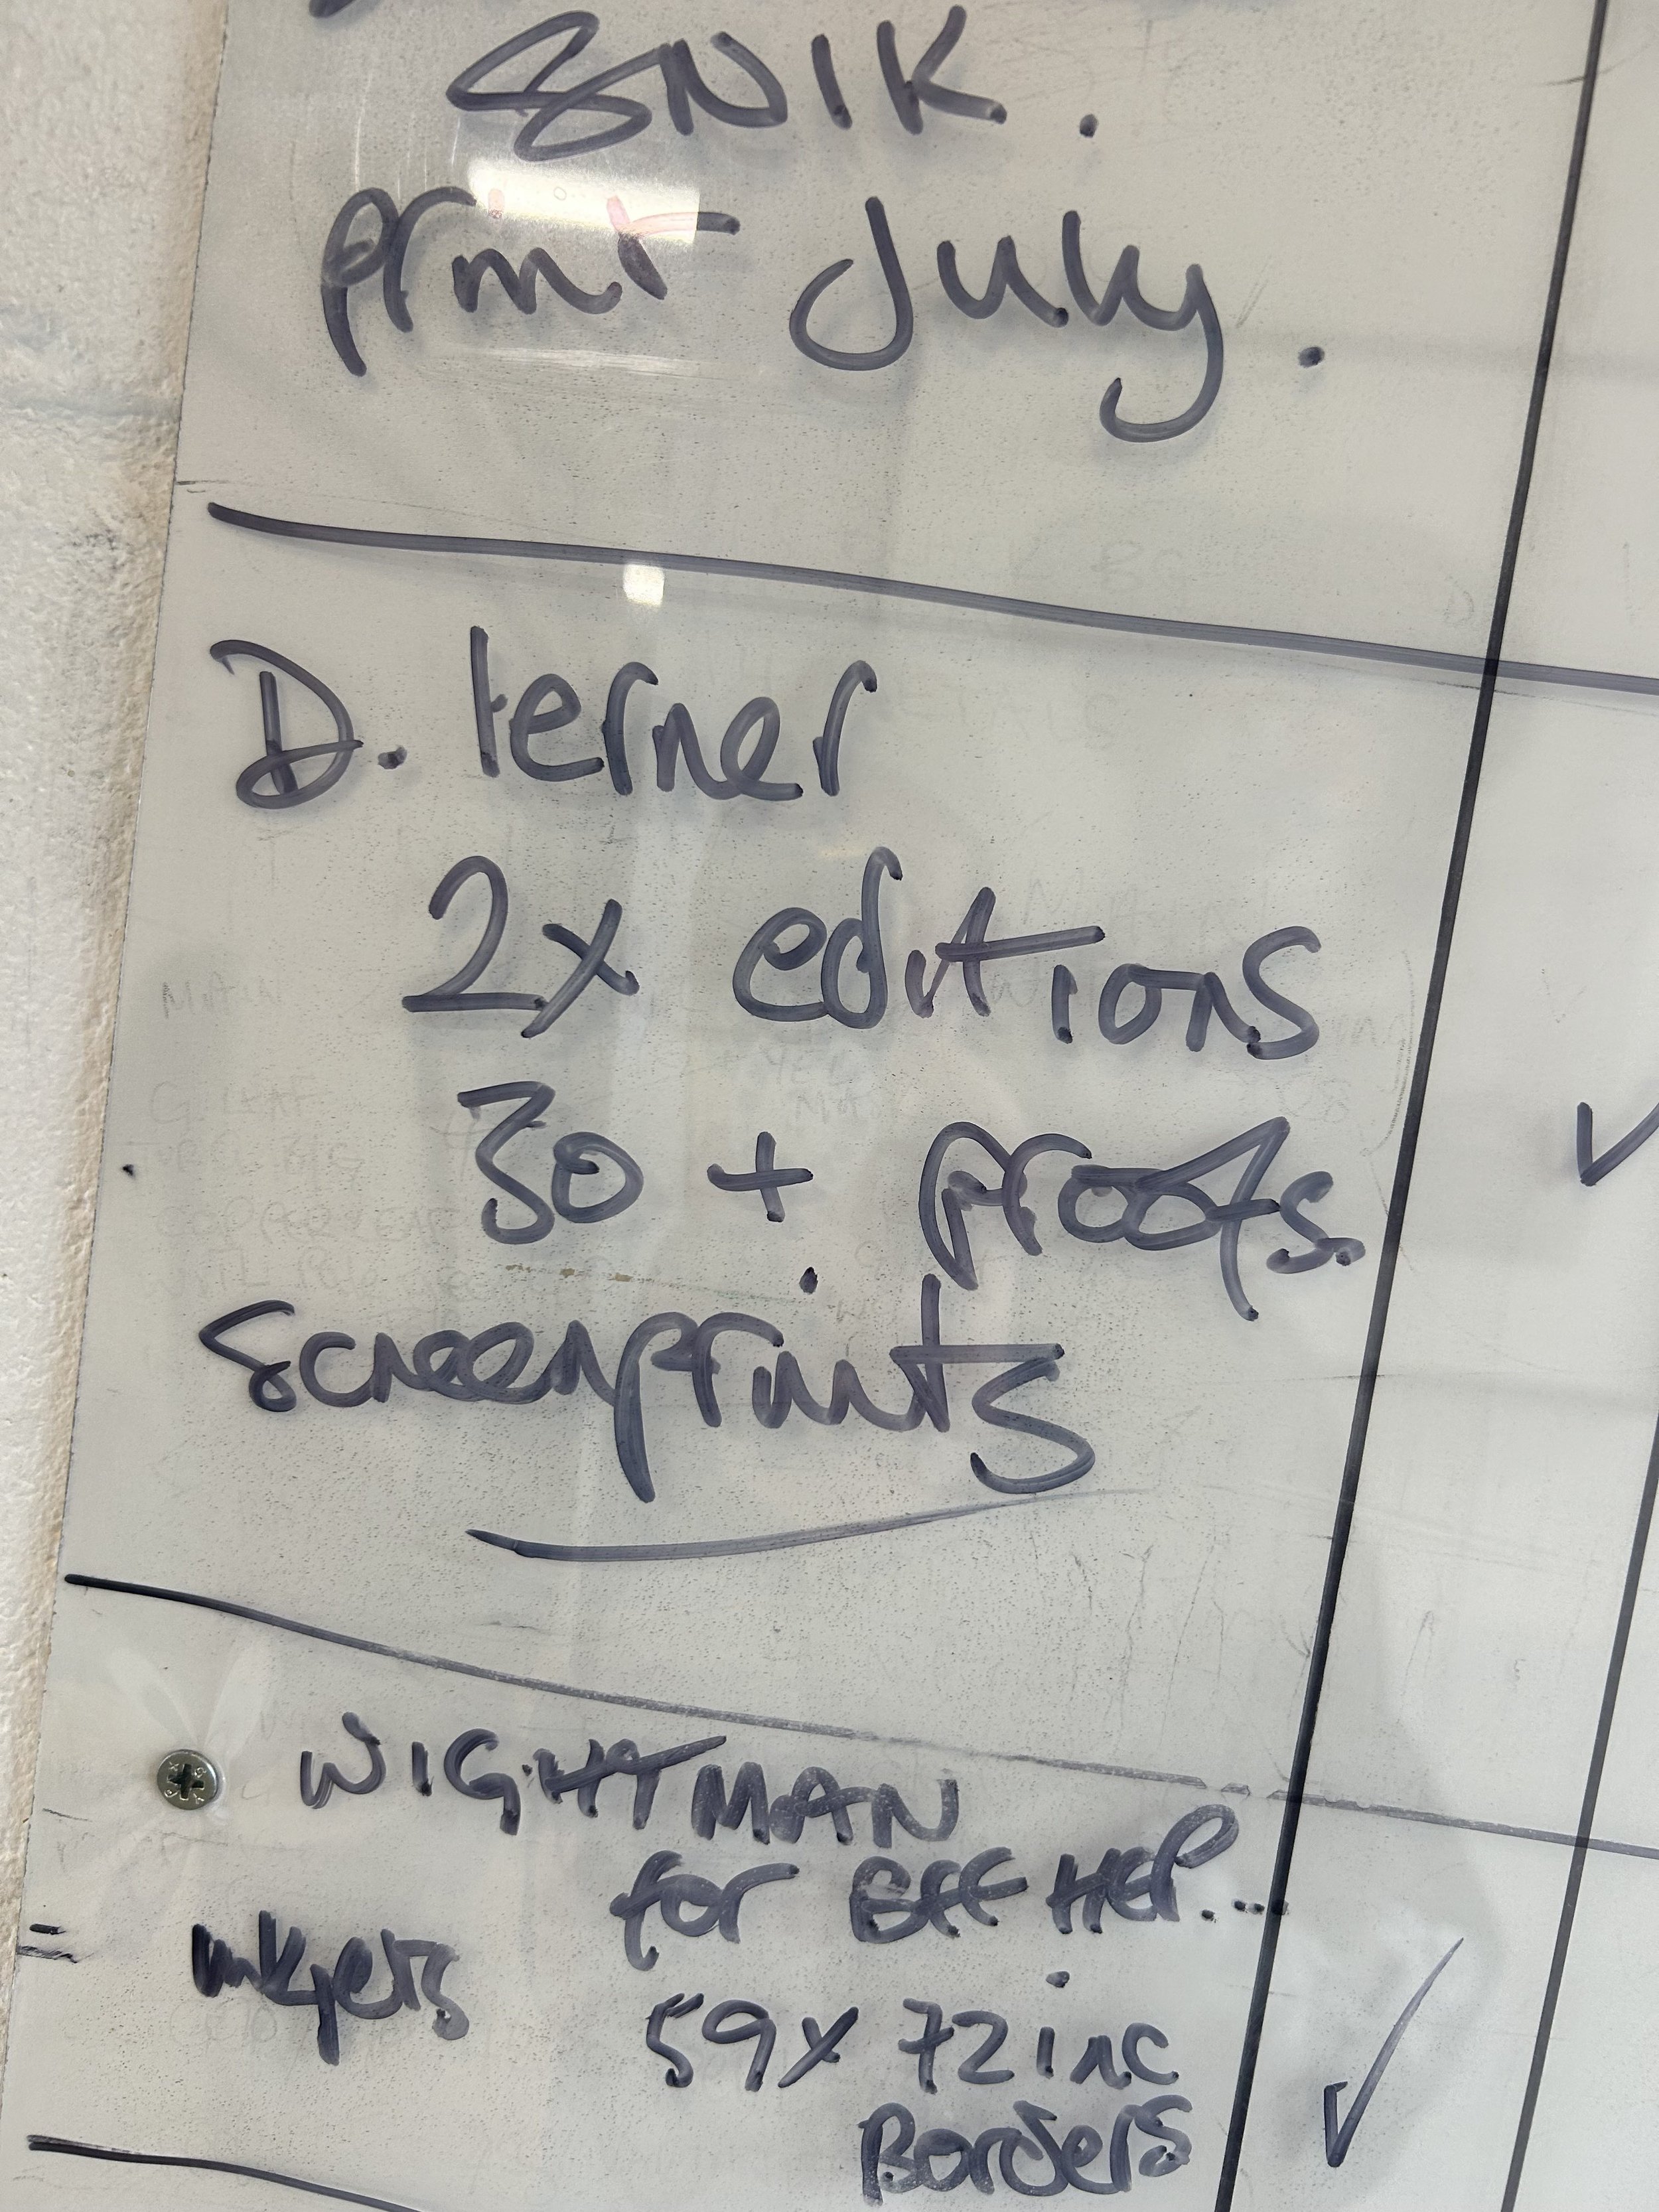 SNIK.
print July.
D. lerner
2x editions
30 + proofs.
Screenprints
WIGHTMAN
for HEP...
inkjets
59x 72 inc
Borders
MAIN